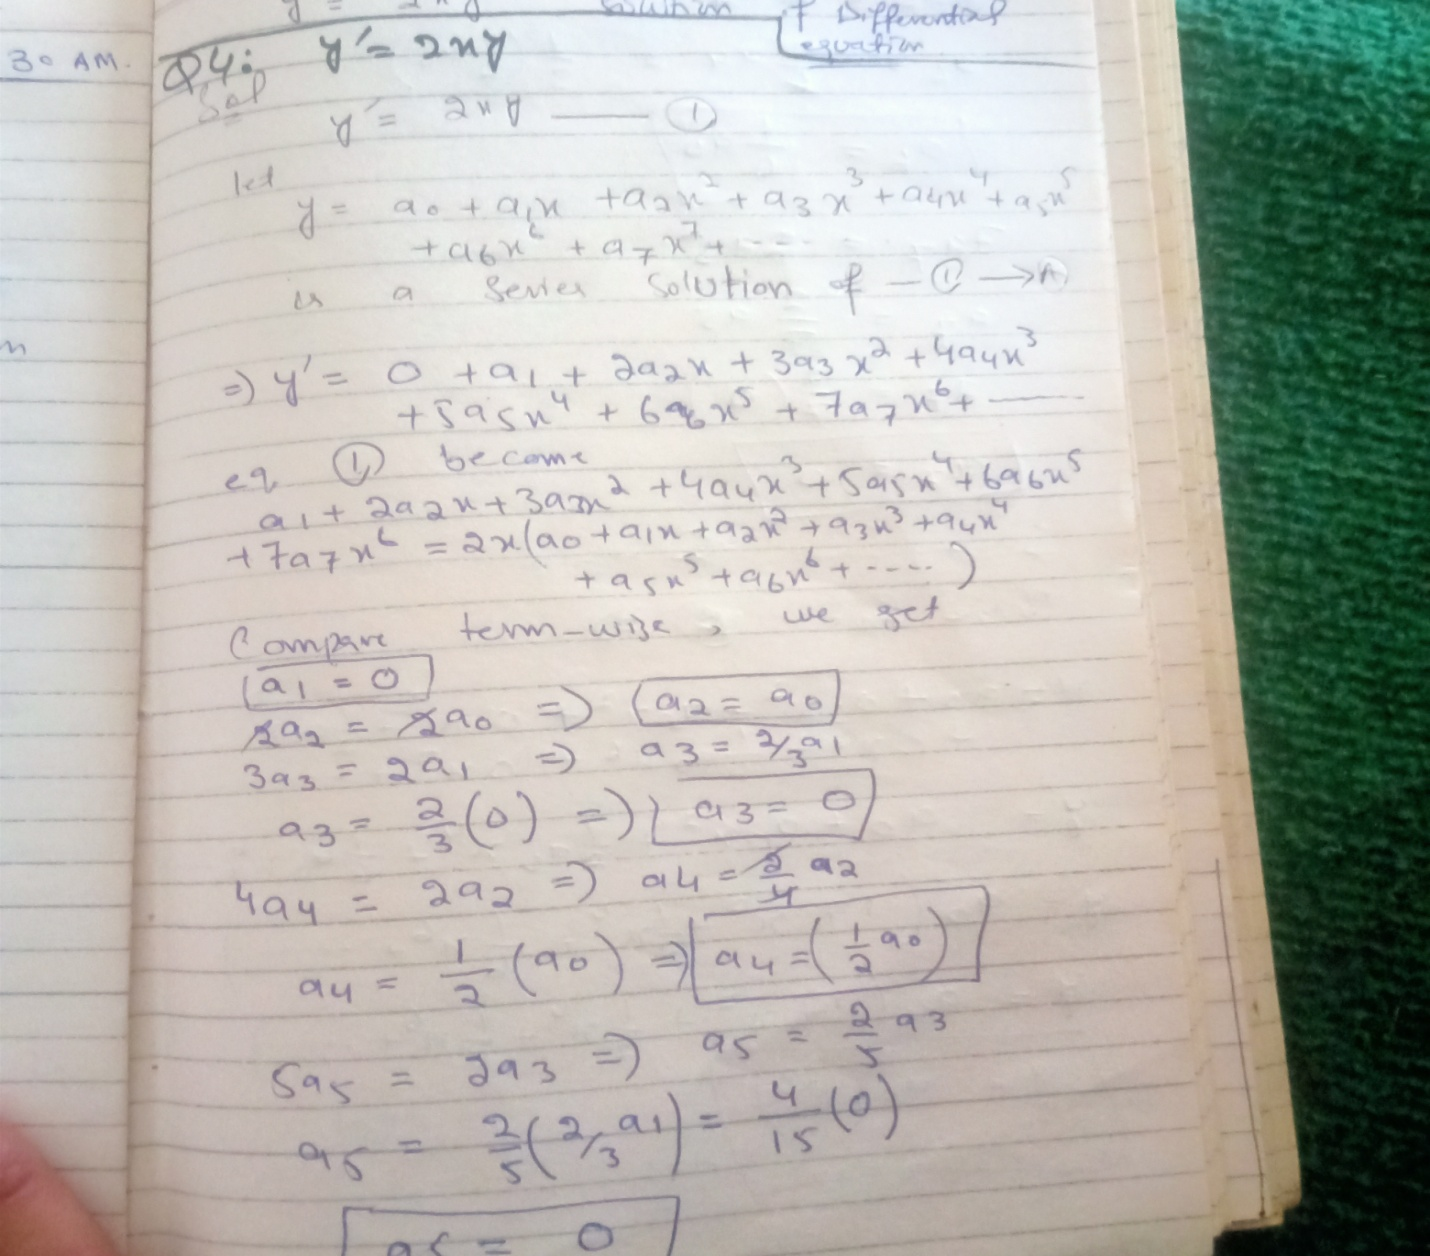 solution of Differential
equation
30 AM.
Q4: y' = 2xy
Sol
y' = 2xy —— ①
let
y = a0 + a1x + a2x² + a3x³ + a4x⁴ + a5x⁵
+ a6x⁶ + a7x⁷ + ----
is a series solution of — ① → A
⇒) y' = 0 + a1 + 2a2x + 3a3x² + 4a4x³
+ 5a5x⁴ + 6a6x⁵ + 7a7x⁶ + ——
eq ① become
a1 + 2a2x + 3a3x² + 4a4x³ + 5a5x⁴ + 6a6x⁵
+ 7a7x⁶ = 2x(a0 + a1x + a2x² + a3x³ + a4x⁴
+ a5x⁵ + a6x⁶ + ----)
Compare term-wise, we get
a1 = 0
2a2 = 2a0 ⇒) a2 = a0
3a3 = 2a1 ⇒) a3 = 2/3 a1
a3 = 2/3 (0) ⇒) a3 = 0
4a4 = 2a2 ⇒) a4 = 2/4 a2
a4 = 1/2 (a0) ⇒) a4 = (1/2 a0)
5a5 = 2a3 ⇒) a5 = 2/5 a3
a5 = 2/5 (2/3 a1) = 4/15 (0)
a5 = 0